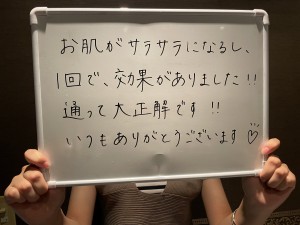 お肌がサラサラになるし、
1回で、効果がありました!!
通って大正解です!!
いつもありがとうございます♡